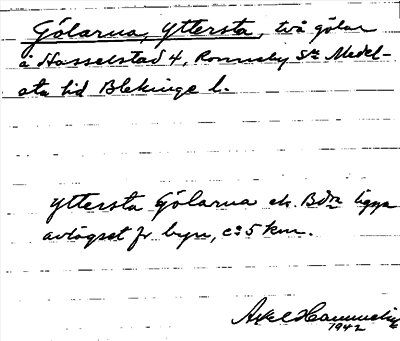 Gölarna, Yttersta, två gölar
å Hasselstad 4, Ronneby Sn Medel-
sta hd Blekinge l.
Yttersta Gölarna ek. Bdn ligga
avlägset fr byn, c:a 5 km.
Axel
1942